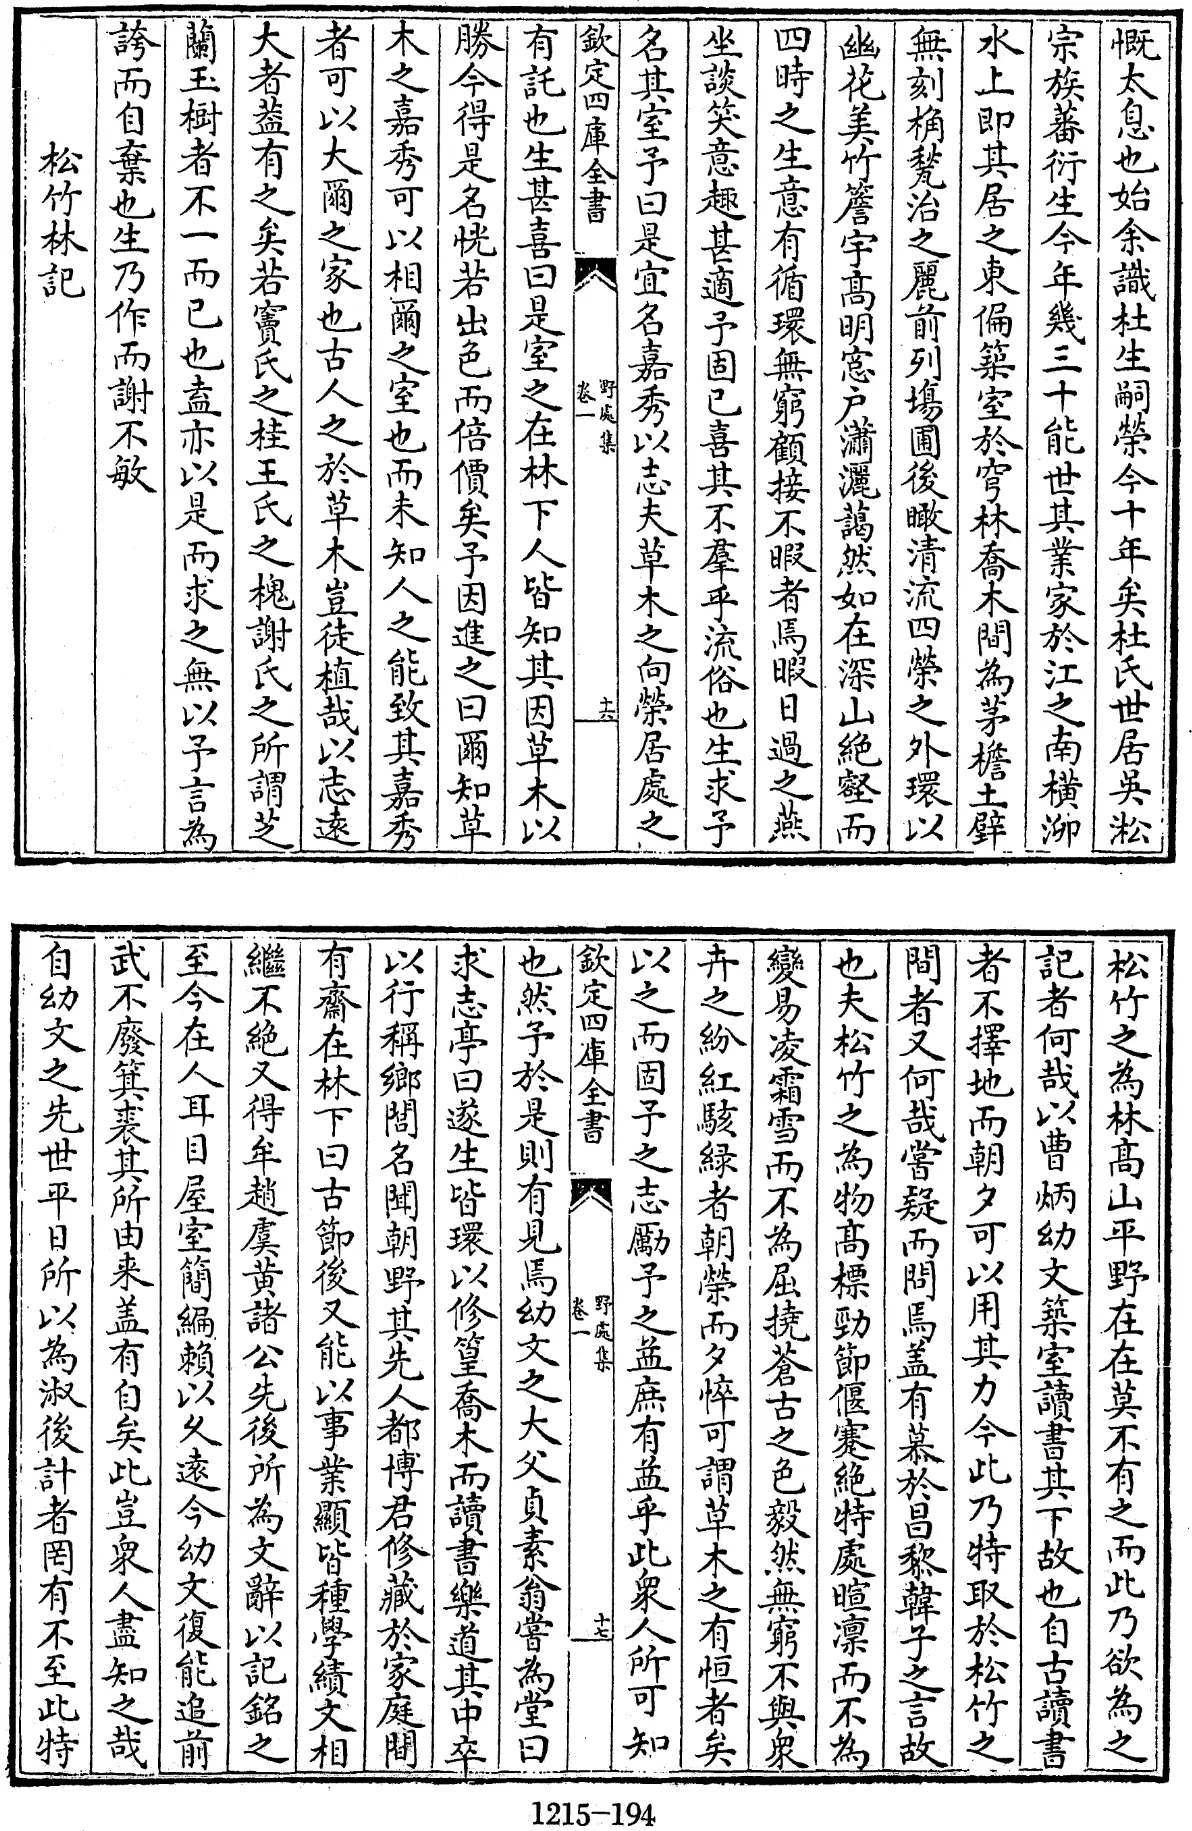 慨太息也始余識杜生嗣榮今十年矣杜氏世居吳淞
宗族蕃衍生今年幾三十能世其業家於江之南橫泖
水上即其居之東偏築室於穹林喬木間為茅檐土壁
無刻桷甃治之麗前列場圃後瞰清流四榮之外環以
幽花美竹簷宇高明窓户瀟灑藹然如在深山絶壑而
四時之生意有循環無窮顧接不暇者焉暇日過之燕
坐談笑意趣甚適予固已喜其不羣乎流俗也生求予
名其室予曰是宜名嘉秀以志夫草木之向榮居處之
欽定四庫全書
野處集
卷一
十六
有託也生甚喜曰是室之在林下人皆知其因草木以
勝今得是名恍若出色而倍價矣予因進之曰爾知草
木之嘉秀可以相爾之室也而未知人之能致其嘉秀
者可以大爾之家也古人之於草木豈徒植哉以志遠
大者葢有之矣若竇氏之桂王氏之槐謝氏之所謂芝
蘭玉樹者不一而已也盍亦以是而求之無以予言為
誇而自棄也生乃作而謝不敏
松竹林記
松竹之為林高山平野在在莫不有之而此乃欲為之
記者何哉以曹炳幼文築室讀書其下故也自古讀書
者不擇地而朝夕可以用其力今此乃特取於松竹之
間者又何哉嘗疑而問焉盖有慕於昌黎韓子之言故
也夫松竹之為物高標勁節偃蹇絶特處暄凛而不為
變易凌霜雪而不為屈撓蒼古之色毅然無窮不與衆
卉之紛紅駭緑者朝榮而夕悴可謂草木之有恒者矣
以之而固予之志勵予之益庶有益乎此衆人所可知
欽定四庫全書
野處集
卷一
十七
也然予於是則有見焉幼文之大父貞素翁嘗為堂曰
求志亭曰遂生皆環以修篁喬木而讀書樂道其中卒
以行稱鄉閭名聞朝野其先人都博君修藏於家庭間
有齋在林下曰古節後又能以事業顯皆種學績文相
繼不絶又得牟趙虞黄諸公先後所為文辭以記銘之
至今在人耳目屋室簡編賴以久遠今幼文復能追前
武不廢箕裘其所由来盖有自矣此豈衆人盡知之哉
自幼文之先世平日所以為淑後計者罔有不至此特
1215-194